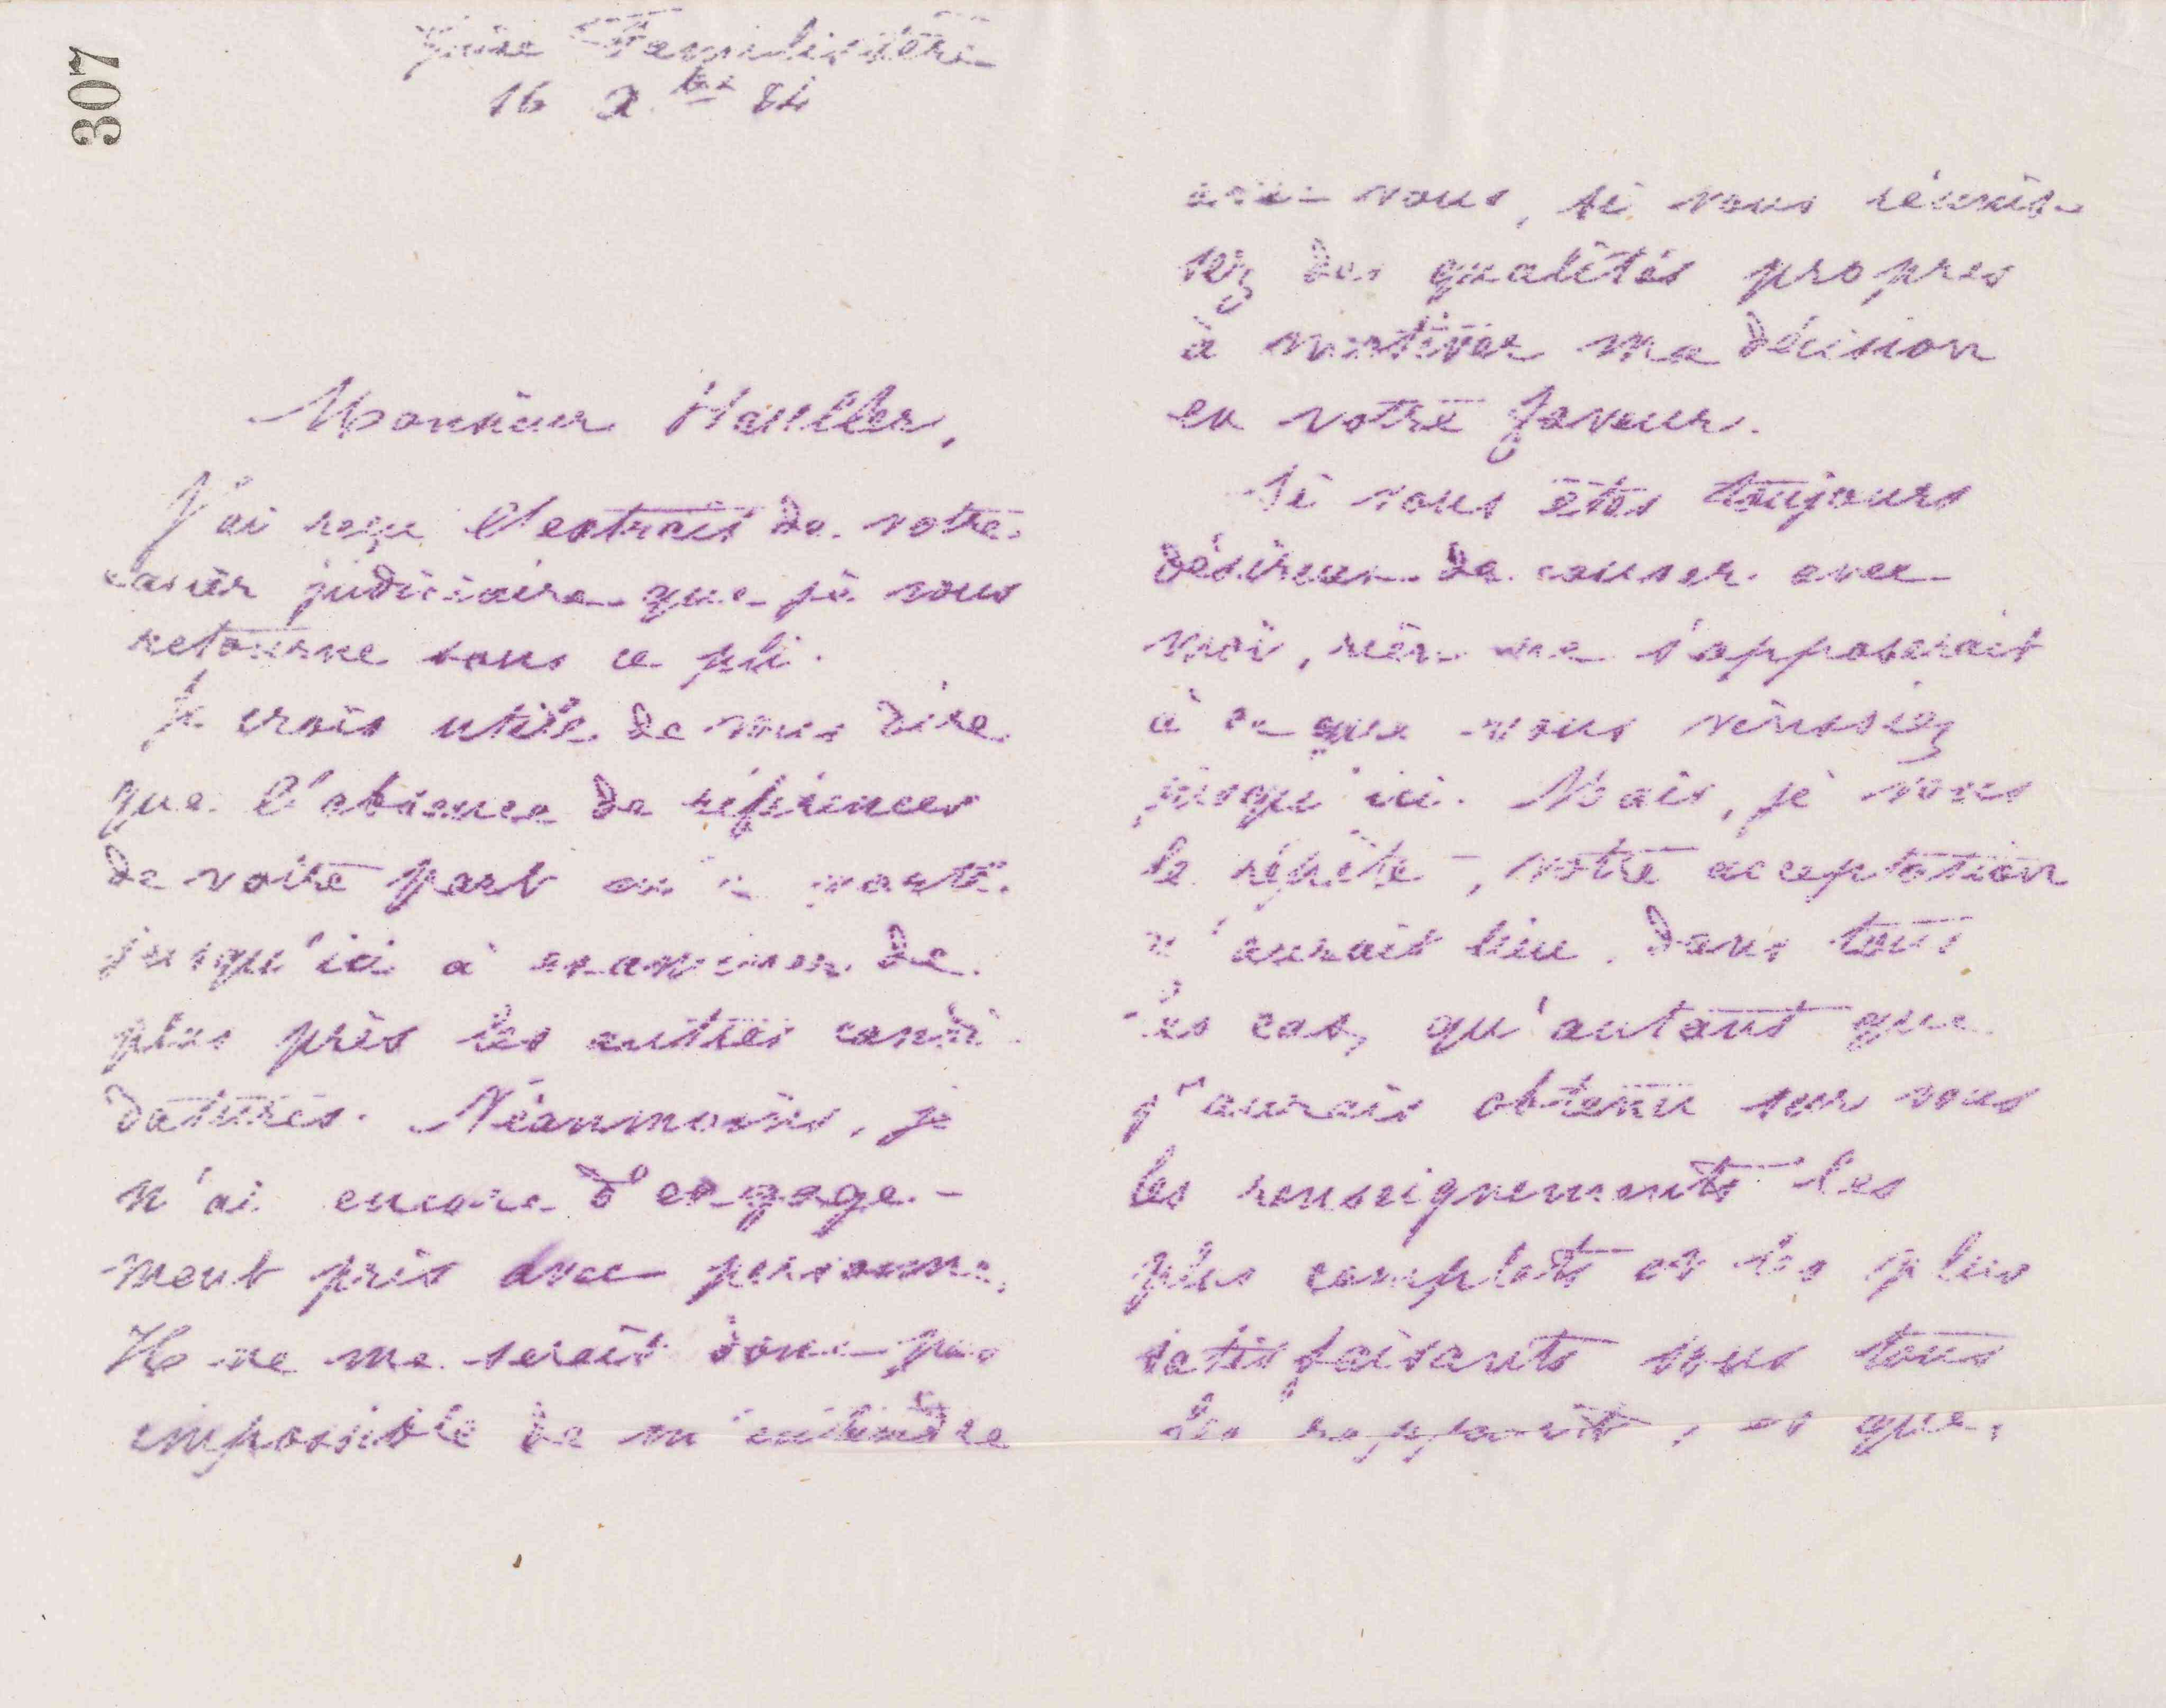 307
Guise Familistère
16 Xbre 84
Monsieur Haüller,
J'ai reçu l'extrait de votre
casier judiciaire que je vous
retourne sous ce pli.
Je crois utile de vous dire
que l'absence de références
de votre part m'a porté
jusqu'ici à examiner de
plus près les autres candi-
datures. Néanmoins, je
n'ai encore d'engage-
ment pris avec personne.
Il ne me serait donc pas
impossible de m'entendre
avec vous, si vous réunis-
sez des qualités propres
à motiver ma décision
en votre faveur.
Si vous êtes toujours
désireux de causer avec
moi, rien ne s'opposerait
à ce que vous vinssiez
jusqu'ici. Mais, je vous
le répète, votre acceptation
n'aurait lieu, dans tous
les cas, qu'autant que
j'aurais obtenu sur vous
les renseignements les
plus complets et les plus
satisfaisants sous tous
les rapports, et que,